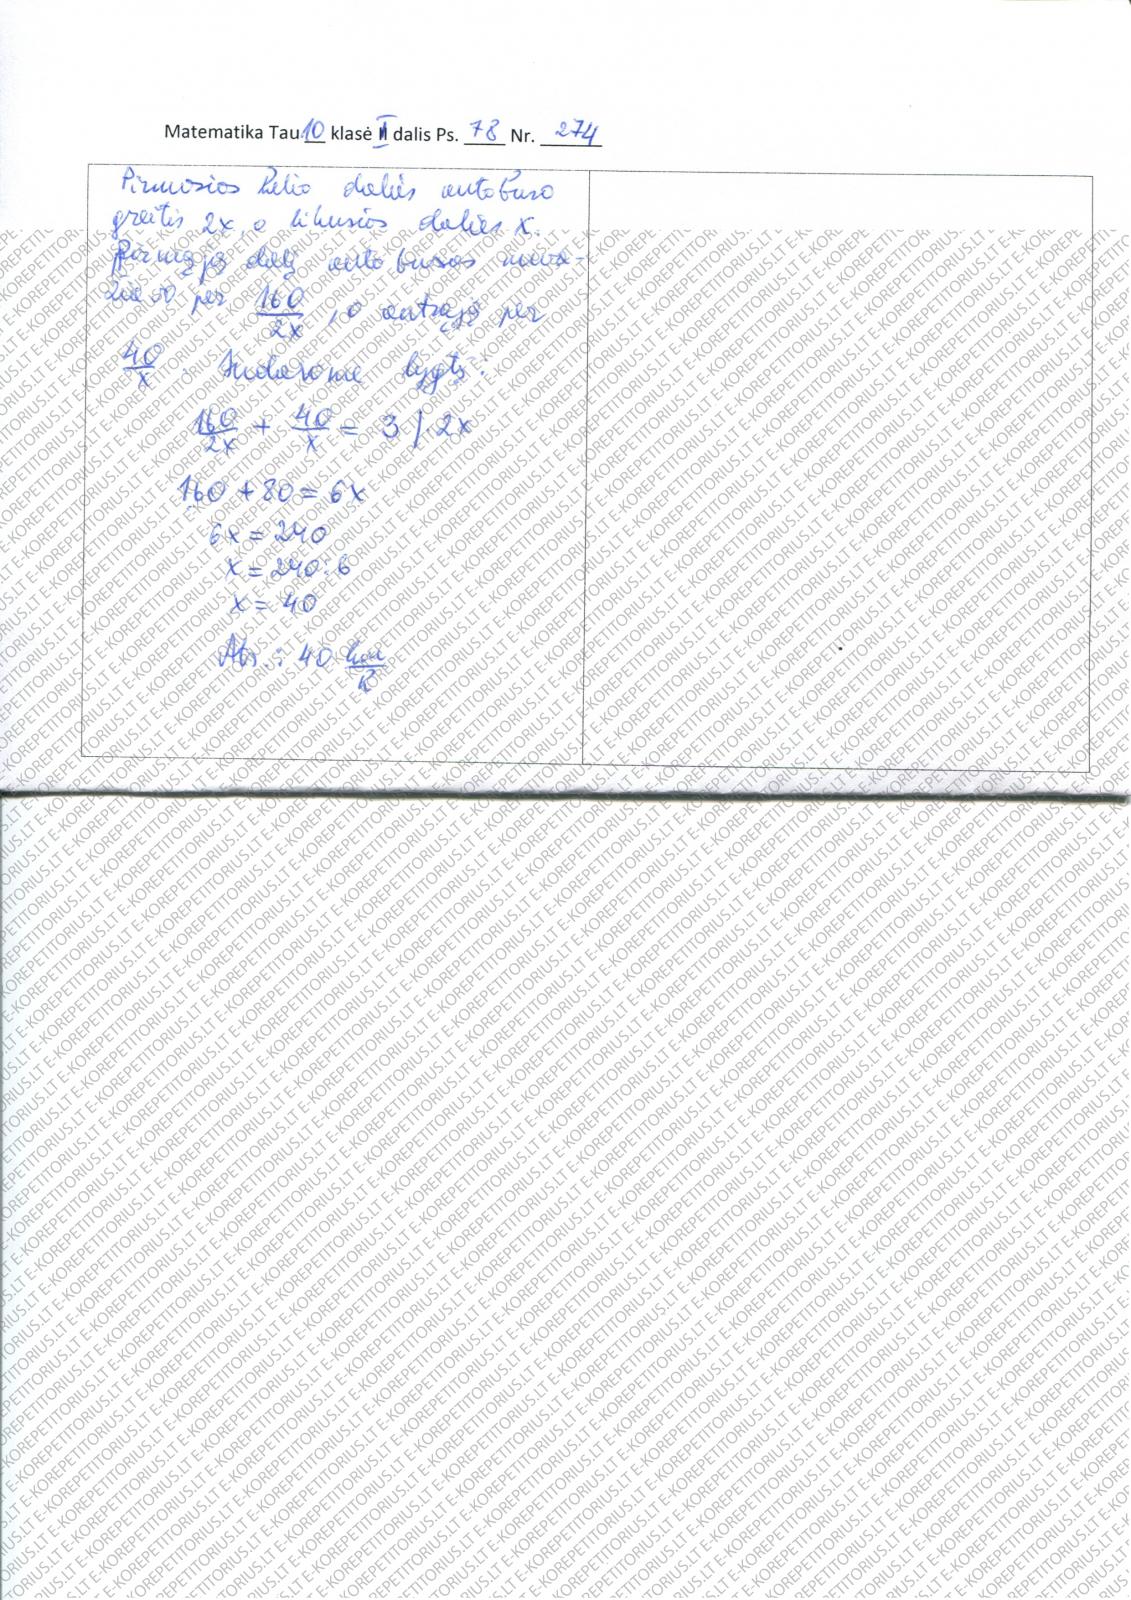 Matematika Tau 10 klasė II dalis Ps. 78 Nr. 274
Pirmosios kelio dalies autobuso
greitis 2x, o likusios dalies x.
Pirmąją dalį autobusas nuva-
žiavo per 160/2x, o antrąją per
40/x. Sudarome lygtį:
160/2x + 40/x = 3 | 2x
160 + 80 = 6x
6x = 240
x = 240:6
x = 40
Ats.: 40 km/h
E-KOREPETITORIUS.LT